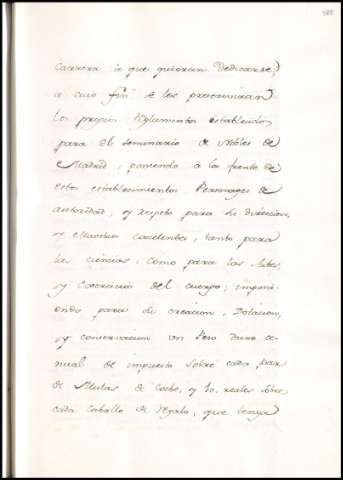 Carrera à que quisieran dedicarse,
a cuio fin se les prescriviran
los propios Reglamentos establecidos
para el seminario de Nobles de
Madrid, poniendo a la frente de
estos establecimientos Personages de
autoridad, y respeto para la direccion,
y Maestros excelentes, tanto para
las ciencias, como para las Artes,
y del cuerpo; imponi-
endo para la creacion, Dotacion,
y conservacion un Peso duro a-
nual de impuesto sobre cada par
de Mulas de Coche, y 10. reales sobre
cada Caballo de Regalo, que tenga